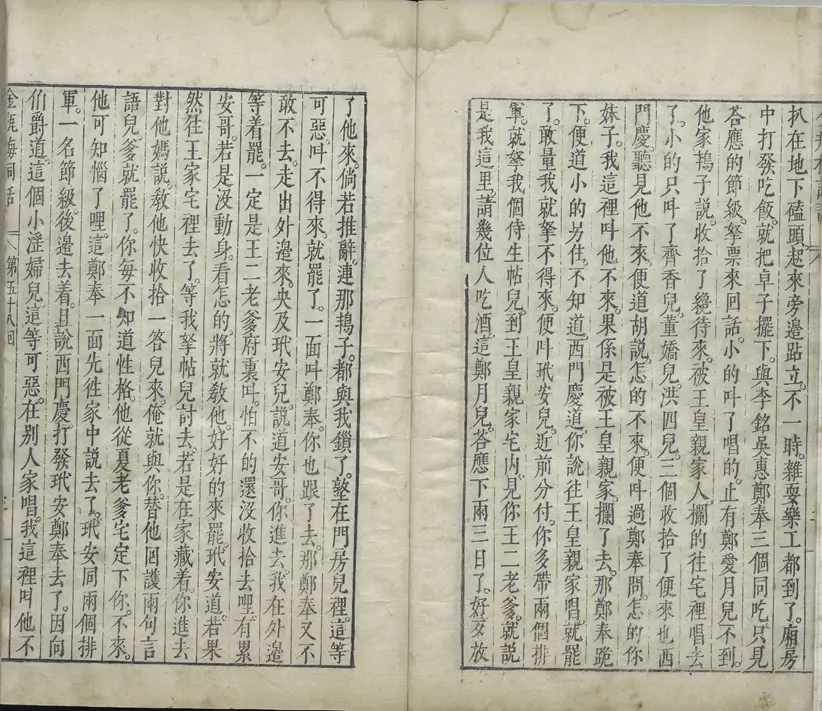 扒在地下磕頭。起來旁邊跕立。不一時。雜耍樂工都到了。廂房
中打發吃飯。就把卓子擺下。與李銘吳惠鄭奉三個同吃。只見
荅應的節級。拏票來回話。小的叫了唱的。止有鄭愛月兒不到。
他家鴇子説。收拾了纔待來。被王皇親家人攔的往宅裡唱去
了。小的只叫了齊香兒。董嬌兒。洪四兒。三個收拾了便來也。西
門慶聽見他不來。便道胡説。怎的不來。便叫過鄭奉問。怎的你
妹子。我這裡叫他不來。果係是被王皇親家攔了去。那鄭奉跪
下。便道小的另住。不知道。西門慶道。你說往王皇親家唱。就罷
了。敢量我就拏不得來。便叫玳安兒。近前分付。你多帶兩個排
軍。就拏我個侍生帖兒。到王皇親家宅内。見你王二老爹。就説
是我這里。請幾位人吃酒。這鄭月兒。荅應下兩三日了。好歹放
了他來。倘若推辭。連那鴇子。都與我鎖了。墪在門房兒裡。這等
可惡。叫不得來。就罷了。一面叫鄭奉。你也跟了去。那鄭奉又不
敢不去。走出外邊來。央及玳安兒。説道安哥。你進去。我在外邊
等着罷。一定是王二老爹府裏叫。怕不的還沒收拾去哩。有累
安哥。若是没動身。看怎的。將就敎他。好好的來罷。玳安道。若果
然往王家宅裡去了。等我拏帖兒討去。若是在家藏着。你進去
對他媽説。敎他快收拾一荅兒來。俺就與你。替他回護兩句言
語兒。爹就罷了。你每不知道性格。他從夏老爹宅定下你。不來。
他可知惱了哩。這鄭奉一面先徃家中説去了。玳安同兩個排
軍。一名節級。後邊去着。且説西門慶。打發玳安鄭奉去了。因向
伯爵道。這個小淫婦兒。這等可惡。在别人家唱。我這裡叫他不
金瓶梅詞話 第五十八回